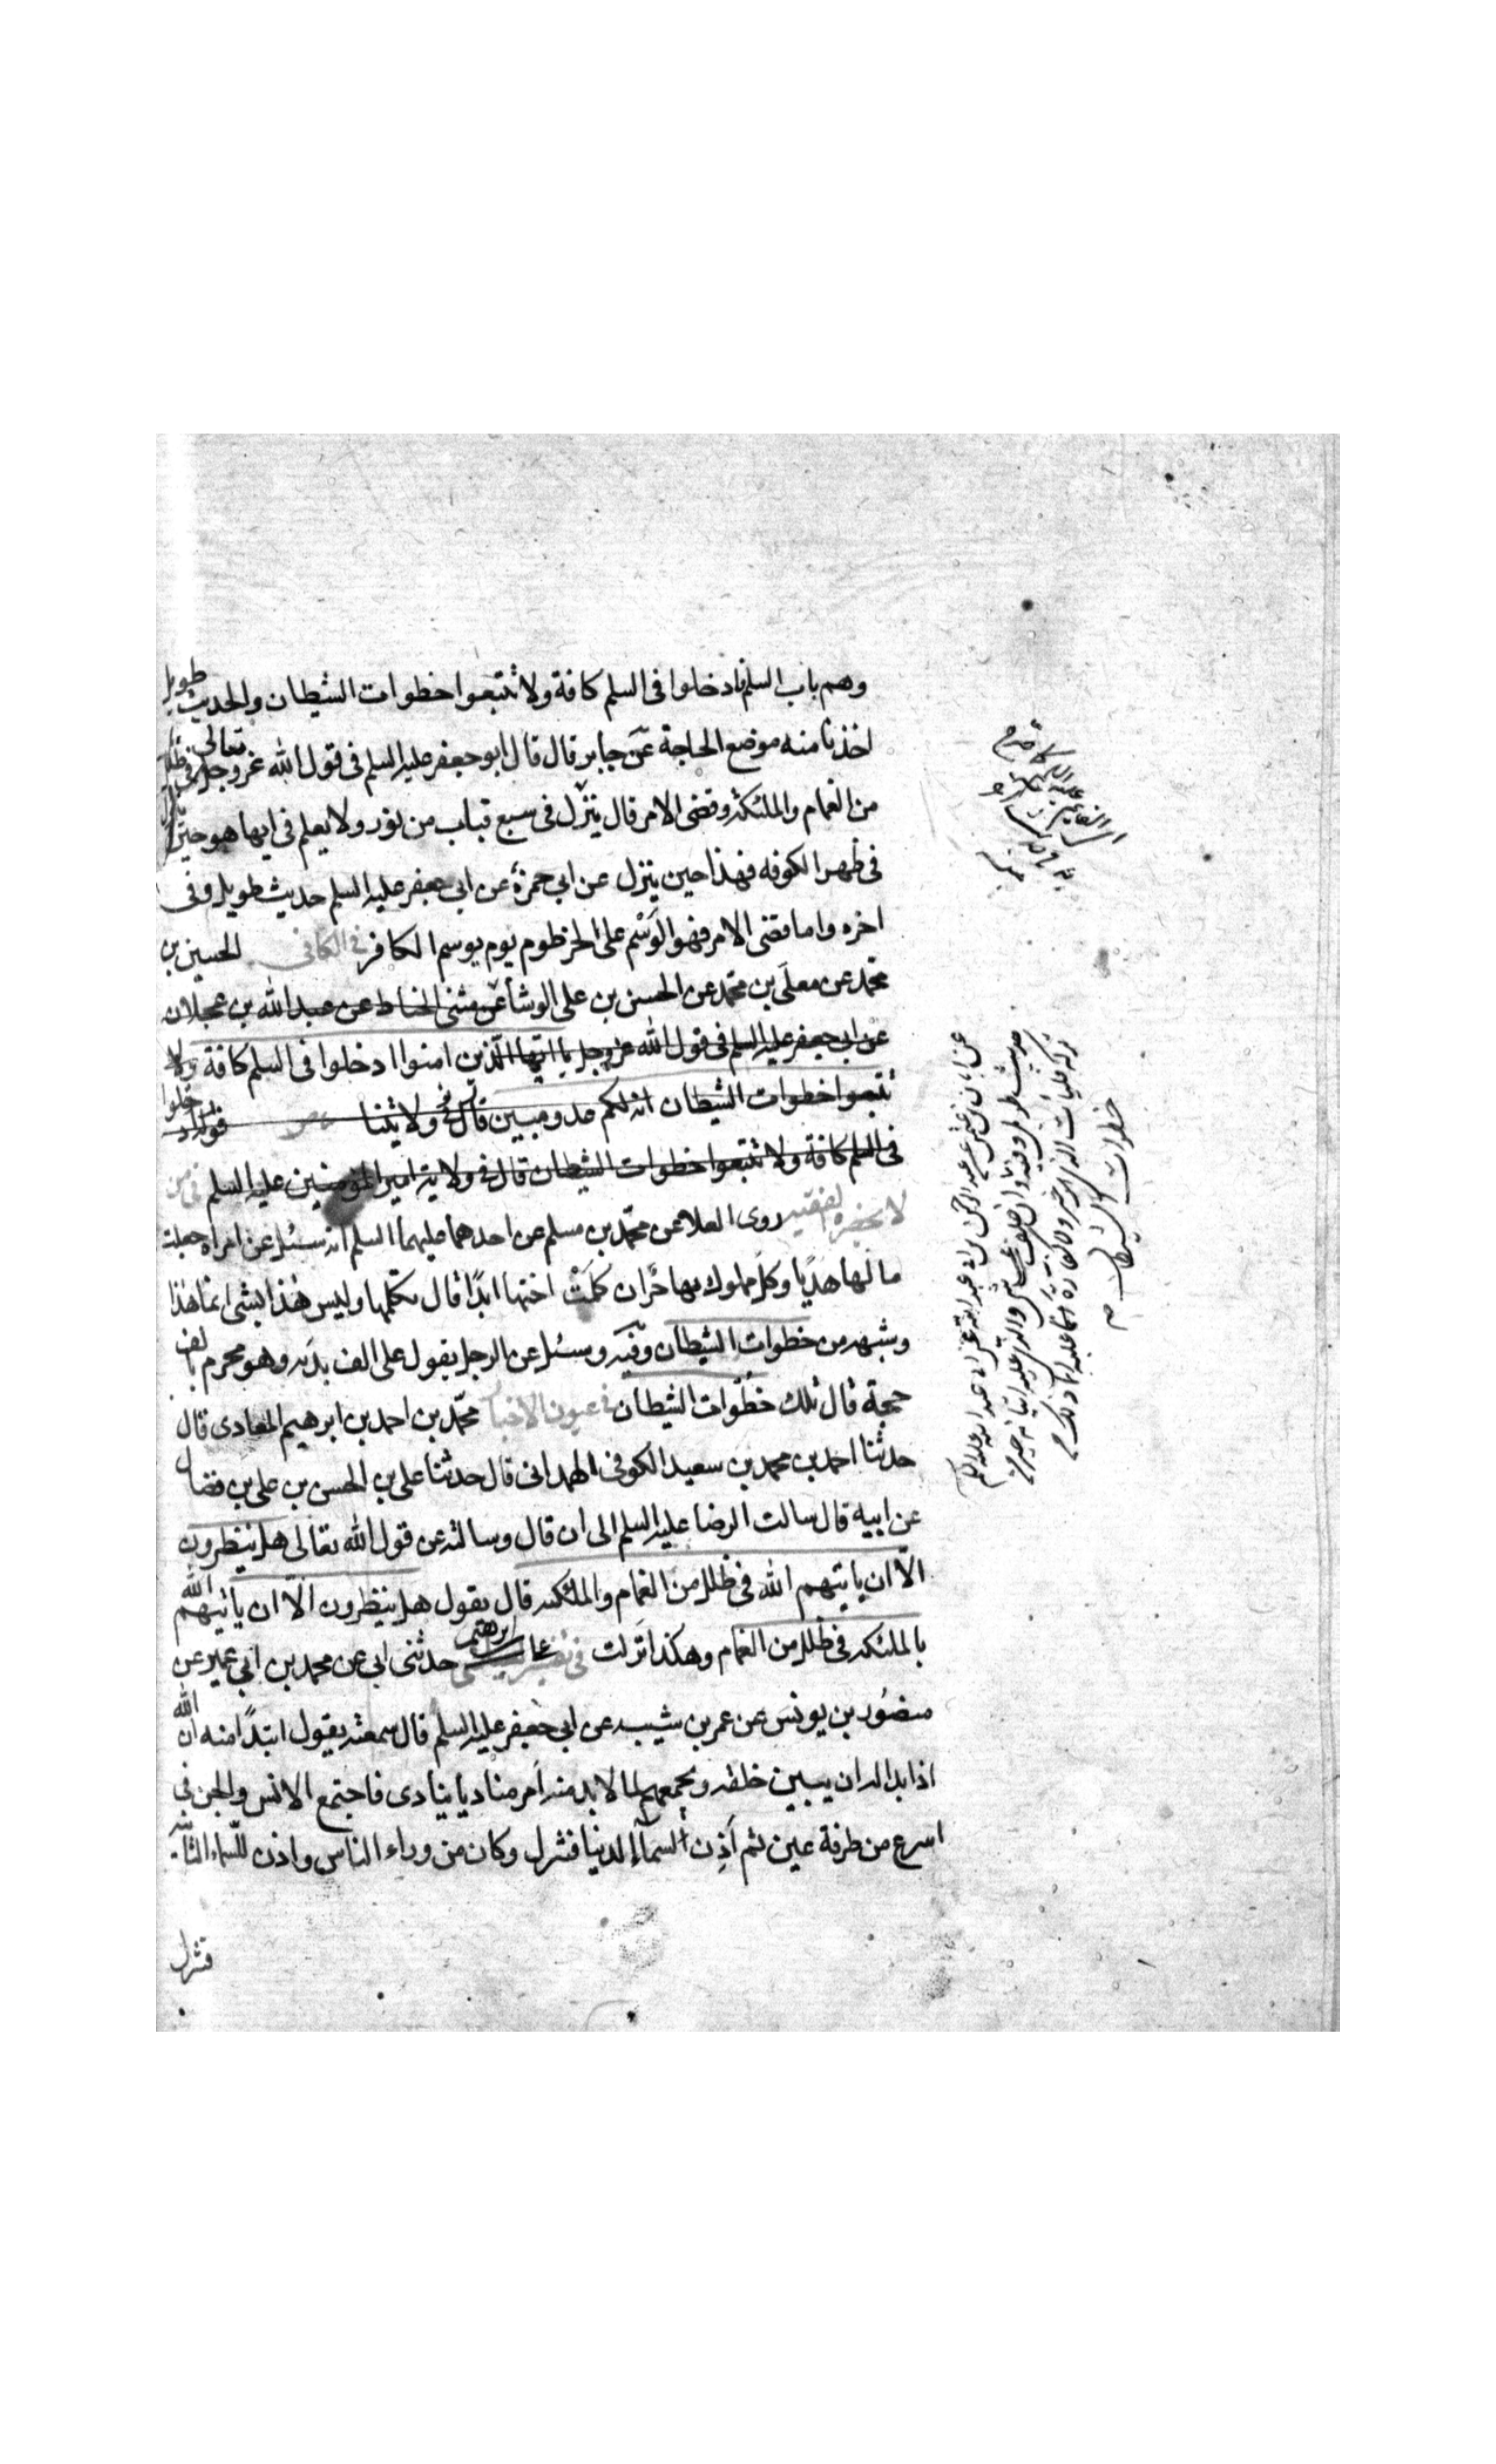 وهم باب السلم فادخلوا فى السلم كافة ولا تتبعوا خطوات الشيطان والحديث طويل
اخذنا منه موضع الحاجة عن جابر قال قال ابو جعفر عليه السلم فى قول الله تعالى عز وجل فى ظلل
من الغمام والملئكة وقضى الامر قال ينزل فى سبع قباب من نور ولا يعلم فى ايها هو حين ينزل
فى ظهر الكوفه فهذا حين ينزل عن ابى حمزة عن ابى جعفر عليه السلم حديث طويل وفى
اخره واما قضى الامر فهو الوسم على الخرطوم يوم يوسم الكافر فى الكافى الحسين بن
محمد عن معلى بن محمد عن الحسن بن على الوشا عن مثنى الحناط عن عبد الله بن عجلان
عن ابى جعفر عليه السلم فى قول الله عز وجل يا ايها الذين امنوا ادخلوا فى السلم كافة ولا
تتبعوا خطوات الشيطان انه لكم عدو مبين قال فى ولايتنا قوله ادخلوا
فى السلم كافة ولا تتبعوا خطوات الشيطان قال فى ولاية امير المؤمنين عليه السلم فى من
لا يحضره الفقيه روى العلا عن محمد بن مسلم عن احدهما عليهما السلم انه سئل عن امراة جعلت
مالها هديا وكل مملوك لها حر ان كلمت اختها ابدا قال تكلمها وليس هذا بشى انما هذا
وشبهه من خطوات الشيطان وفيه وسئل عن الرجل يقول على الف بدنه وهو محرم بالف
حجة قال تلك خطوات الشيطان فى عيون الاخبار محمد بن احمد بن ابرهيم المعادى قال
حدثنا احمد بن محمد بن سعيد الكوفى الهمدانى قال حدثنا على بن الحسن بن على بن فضال
عن ابيه قال سالت الرضا عليه السلم الى ان قال وسالته عن قول الله تعالى هل ينظرون
الا ان ياتيهم الله فى ظلل من الغمام والملئكة قال يقول هل ينظرون الا ان ياتيهم الله
بالملئكة فى ظلل من الغمام وهكذا نزلت فى تفسير على ابرهيم حدثنى ابى عن محمد بن ابى عمير عن
منصور بن يونس عن عمر بن شيبه عن ابى جعفر عليه السلم قال سمعته يقول ابتدا منه ان الله
اذا بدا له ان يبين خلقه ويجمعهم لما لا بد منه امر مناديا ينادى فاجتمع الانس والجن فى
اسرع من طرفة عين ثم اذن السماء الدنيا فتنزل وكان من وراء الناس واذن للسماء الثانية
فتنزل
خطوات الشيطان